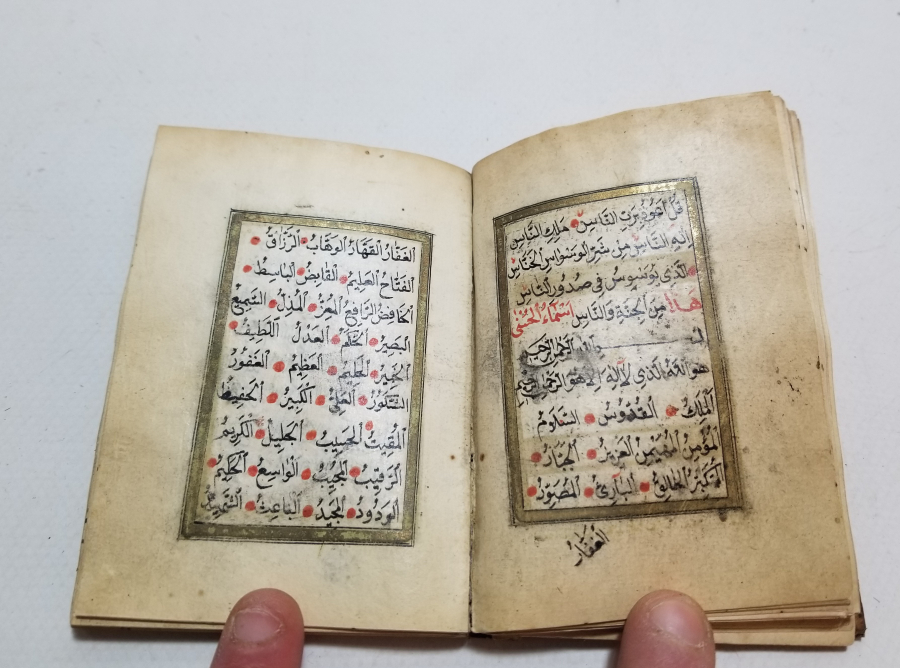 قل اعوذ برب الناس ملك الناس
اله الناس من شر الوسواس الخناس
الذي يوسوس في صدور الناس
من الجنة والناس هذا اسماء الحسنى
الرحمن الرحيم
هو الله الذي لا اله الا هو الرحمن الرحيم
الملك القدوس السلام
المؤمن المهيمن العزيز الجبار
المتكبر الخالق البارئ المصور
الغفار
الغفار القهار الوهاب الرزاق
الفتاح العليم القابض الباسط
الخافض الرافع المعز المذل السميع
البصير الحكم العدل اللطيف
الخبير الحليم العظيم الغفور
الشكور العلي الكبير الحفيظ
المقيت الحسيب الجليل الكريم
الرقيب المجيب الواسع الحكيم
الودود المجيد الباعث الشهيد